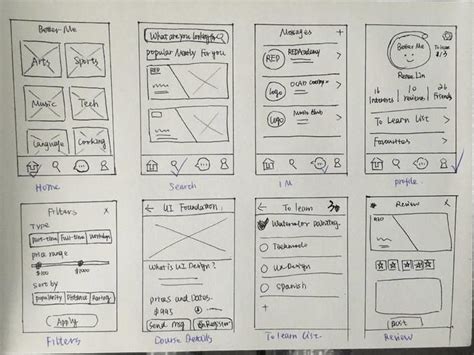 Better Me
Arts
Sports
Music
Tech
Language
Cooking
Home
What are you looking for
popular Newly For you
RED
Search
Messages +
RED
REDAcademy
Logo
Logo
IM
Better Me
To learn
Renee Lin
16
10
26
Interests
reviews
Friends
To Learn List
Favourites
profile
Filters X
Type
Part-time
Full-time
Workshop
price range
$100
$1000
Sort by
popularity
Distance
Rating
Apply
Filters
UI Foundation
What is UI Design?
prices and Dates.
$995
Send msg
Register
Course Details
To learn
Watercolor painting
UX Design
Spanish
+
To learn List
Review X
RED
post
Review